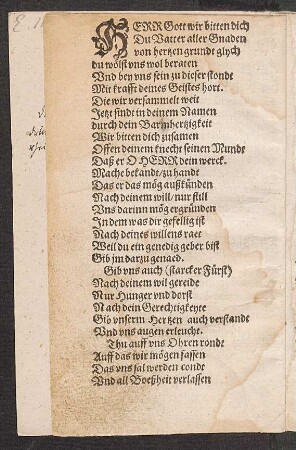 HERR Gott wir bitten dich
Du Vatter aller Gnaden
von hertzen grundt glych
du wölst vns wol beraten
Vnd bey vns sein zu dieser stonde
Mit krafft deines Geistes hort.
Die wir versammelt weit
Jetzt sindt in deinem Namen
durch dein Barmhertzigkeit
Wir bitten dich zusamen
Offen deinem knecht seinen Mundt
Daß er O HERR dein werck.
Mache bekandt/zu handt
Das er das mög außkünden
Nach deinem will/nur still
Vns darinn mög ergründen
In dem was dir gefellig ist
Nach deines willens raet
Weil du ein genedig geber bist
Gib jm darzu genaed.
Gib vns auch (starcker Fürst)
Nach deinem wil gereide
Nur Hunger vnd dorst
Nach dein Gerechtigkeyte
Gib vnserm Hertzen auch verstande
Vnd vns augen erleucht.
Thu auff vns Ohren ronde
Auff das wir mögen fassen
Das vns sal werden conde
Vnd all Boeßheit verlassen